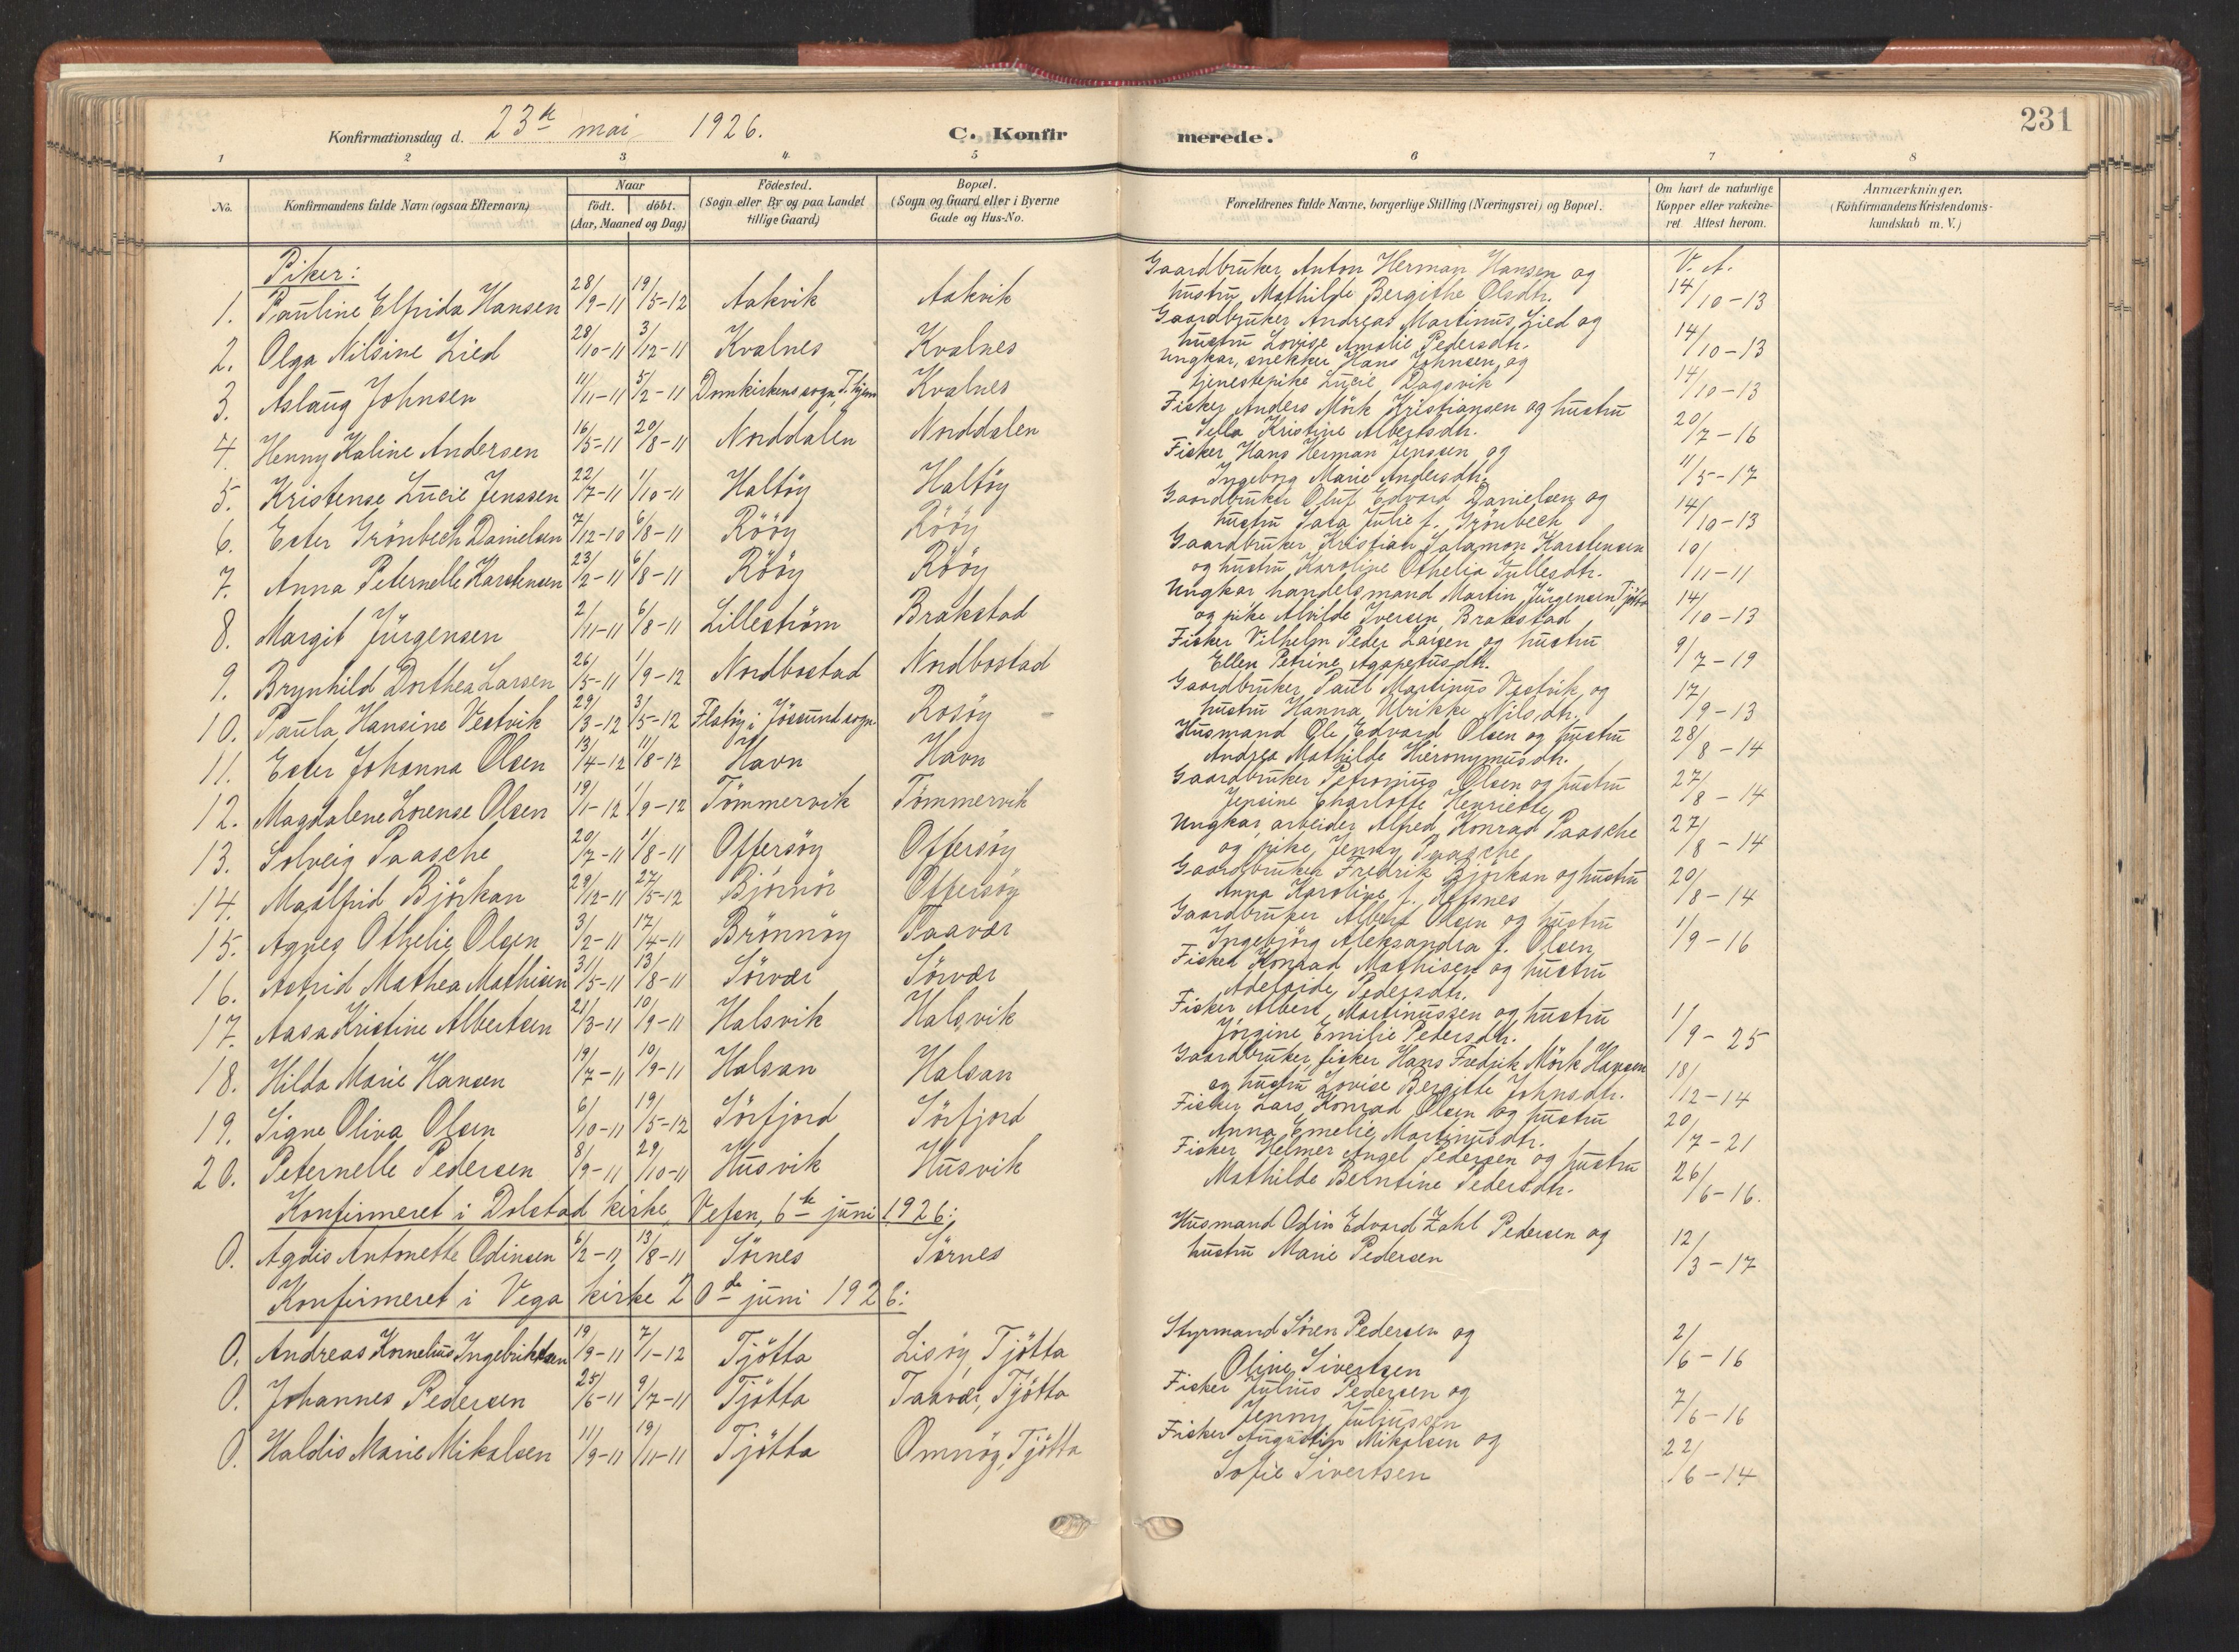 231
Konfirmationsdag d. 23de mai 1926. C. Konfirmerede.
1 2 3 4 5 6 7 8
No. Konfirmandens fulde Navn (ogsaa Efternavn) Naar födt. döbt. (Aar, Maaned og Dag) Födested. (Sogn eller By og paa Landet tillige Gaard) Bopæl. (Sogn og Gaard eller i Byerne Gade og Hus-No. Forældrenes fulde Navne, borgerlige Stilling (Næringsvei) og Bopæl. Om havt de naturlige Kopper eller vakcineret. Attest herom. Anmærkninger. (Konfirmandens Kristendomskundskab m. V.)
Piker: V. A.
1. Pauline Elfrida Hansen 28/9-11 19/5-12 Aakvik Aakvik Gaardbruker Anton Herman Hansen og hustru Mathilde Bergithe Olsdtr. 14/10-13
2. Olga Nilsine Lied 28/10-11 3/12-11 Kvalnes Kvalnes Gaardbruker Andreas Martinus Lied og hustru Lovise Amalie Pedersdtr. 14/10-13
3. Aslaug Johnsen 11/11-11 5/2-11 Domkirkens sogn, T.hjem Kvalnes Ungkar, snekker Hans Johnsen, og tjenestepike Lucie Dagsvik 14/10-13
4. Henny Kaline Andersen 16/5-11 20/8-11 Norddalen Norddalen Fisker Anders Mörk Kristiansen og hustru Sella Kristine Albertsdtr. 20/7-16
5. Kristense Lucie Jenssen 22/7-11 1/10-11 Haltöy Haltöy Fisker Hans Herman Jenssen og Ingeborg Marie Andersdtr. 11/5-17
6. Ester Grönbech Danielsen 7/12-10 6/8-11 Rööy Rööy Gaardbruker Oluf Edvard Danielsen og hustru Sara Julie f. Grönbech 14/10-13
7. Anna Peternelle Karstensen 23/2-11 6/8-11 Rööy Rööy Gaardbruker Kristian Salamon Karstensen og hustru Karoline Othelia Tullesdtr. 10/11-11
8. Margit Jürgensen 2/11-11 6/8-11 Lilleström Brakstad Ungkar handelsmand Martin Jürgensen Tjötta og pike Alvilde Iversen, Brakstad 14/10-13
9. Brynhild Dorthea Larsen 26/5-11 1/9-12 Nordbostad Nordbostad Fisker Vilhelm Peder Larsen og hustru Ellen Petrine Agapetusdtr. 9/7-19
10. Paula Hansine Vestvik 29/3-12 3/5-12 Flatöy i Jössund sogn Rosöy Gaardbruker Paul Martinus Vestvik og hustru Hanna Ulrikke Nilsdtr. 17/9-13
11. Ester Johanna Olsen 13/4-12 11/8-12 Havn Havn Husmand Ole Edvard Olsen og hustru Andrea Mathilde Hieronymusdtr. 28/8-14
12. Magdalene Lorense Olsen 19/1-12 1/9-12 Tömmervik Tömmervik Gaardbruker Petronius Olsen og hustru Jensine Charlotte Henriette 27/8-14
13. Solveig Paasche 20/7-11 1/8-11 Offersöy Offersöy Ungkar arbeider Alfred Konrad Paasche og pike Jenny Paasche 27/8-14
14. Maalfrid Björkan 29/12-11 27/5-12 Björnör Offersöy Gaardbruker Fredrik Björkan og hustru Anna Karoline f. Refsnes 20/8-14
15. Agnes Othelie Olsen 3/2-11 17/4-11 Brönnöy Taavær Gaardbruker Albert Olsen og hustru Ingebjörg Aleksandra f. Olsen 1/9-16
16. Astrid Mathea Mathisen 31/5-11 13/8-11 Sörvær Sörvær Fisker Konrad Mathisen og hustru Adelaide Pedersdtr.
17. Aasa Kristine Albertsen 21/3-11 10/9-11 Halsvik Halsvik Fisker Albert Martinussen og hustru Jörgine Emilie Pedersdtr. 1/9-25
18. Hilda Marie Hansen 19/7-11 10/9-11 Halsan Halsan Gaardbruker, fisker Hans Fredrik Mörk Hansen og hustru Lovise Bergitte Johnsdtr. 18/12-14
19. Signe Oliva Olsen 6/10-11 19/5-12 Sörfjord Sörfjord Fisker Lars Konrad Olsen og hustru Anna Emelie Martinusdtr. 20/7-21
20. Peternelle Pedersen 8/9-11 29/10-11 Husvik Husvik Fisker Helmer Angel Pedersen og hustru Mathilde Berntine Pedersdtr. 26/6-16.
Konfirmeret i Dolstad kirke, Vefsn, 6te juni 1926:
0. Agdis Antonette Odinsen 6/2-11 13/8-11 Sörnes Sörnes Husmand Odin Edvard Zahl Pedersen og hustru Marie Pedersen 12/3-17
Konfirmeret i Vega kirke 20de juni 1926:
0. Andreas Kornelius Ingebriktsen 19/9-11 7/1-12 Tjötta Lisöy, Tjötta Styrmand Sören Pedersen og Oline Sivertsen 2/6-16
0. Johannes Pedersen 25/6-11 9/7-11 Tjötta Taavær, Tjötta Fisker Julius Pedersen og Jenny Juliussen 7/6-16
0. Haldis Marie Mikalsen 11/9-11 19/11-11 Tjötta Omnöy, Tjötta Fisker Augustin Mikalsen og Sofie Sivertsen 22/6-14